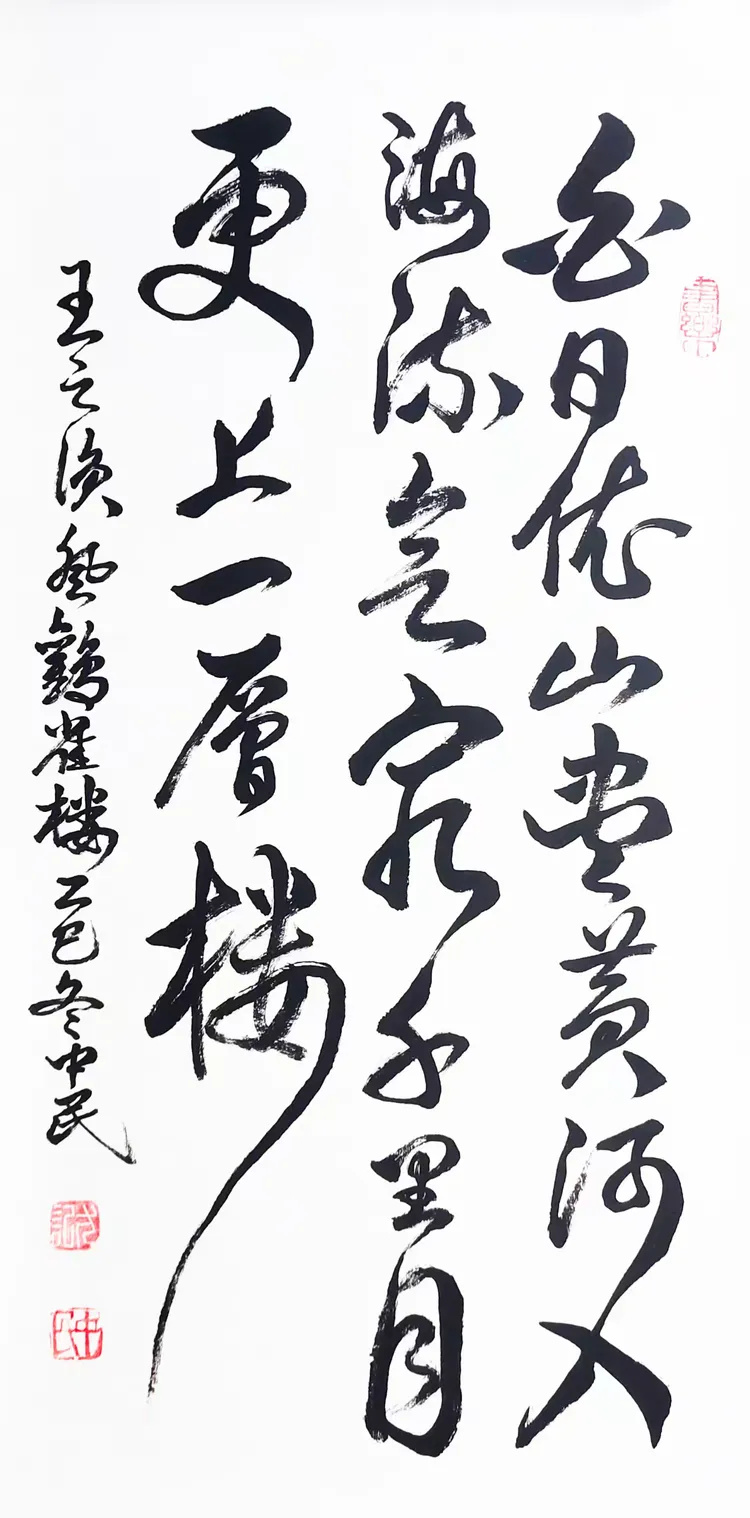 白日依山盡黄河入
海流欲窮千里目
更上一層樓
王之涣登鸛雀樓乙巳冬中民